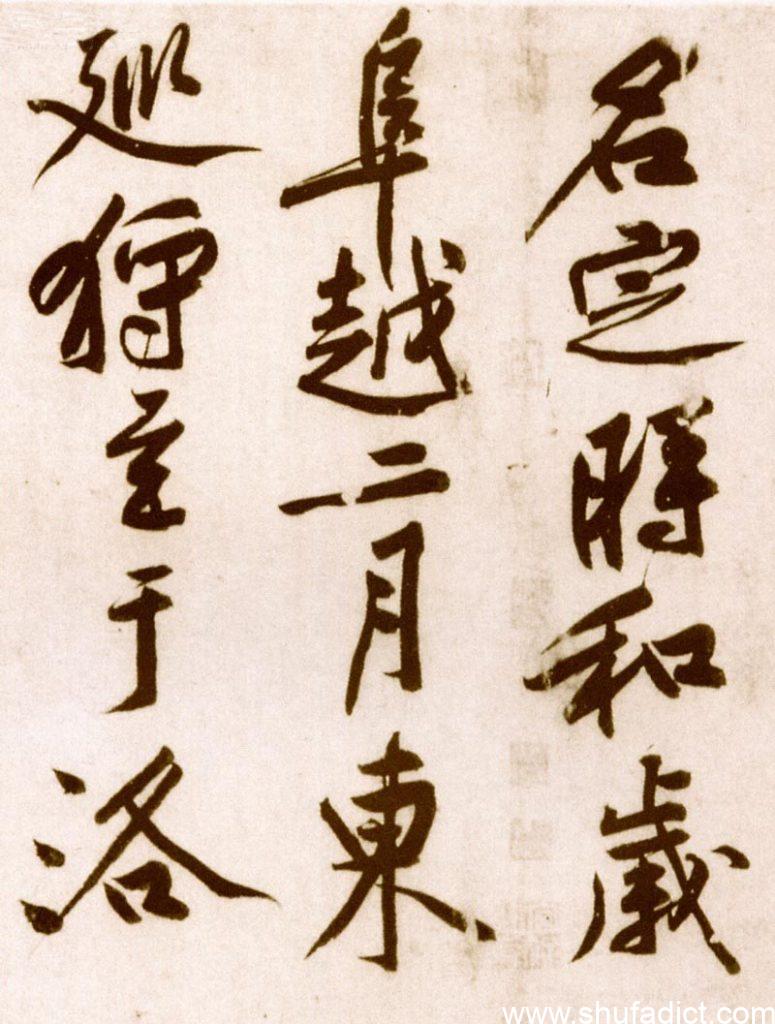 名定時和歲
阜越二月東
廵狩至于洛
www.shufadict.com